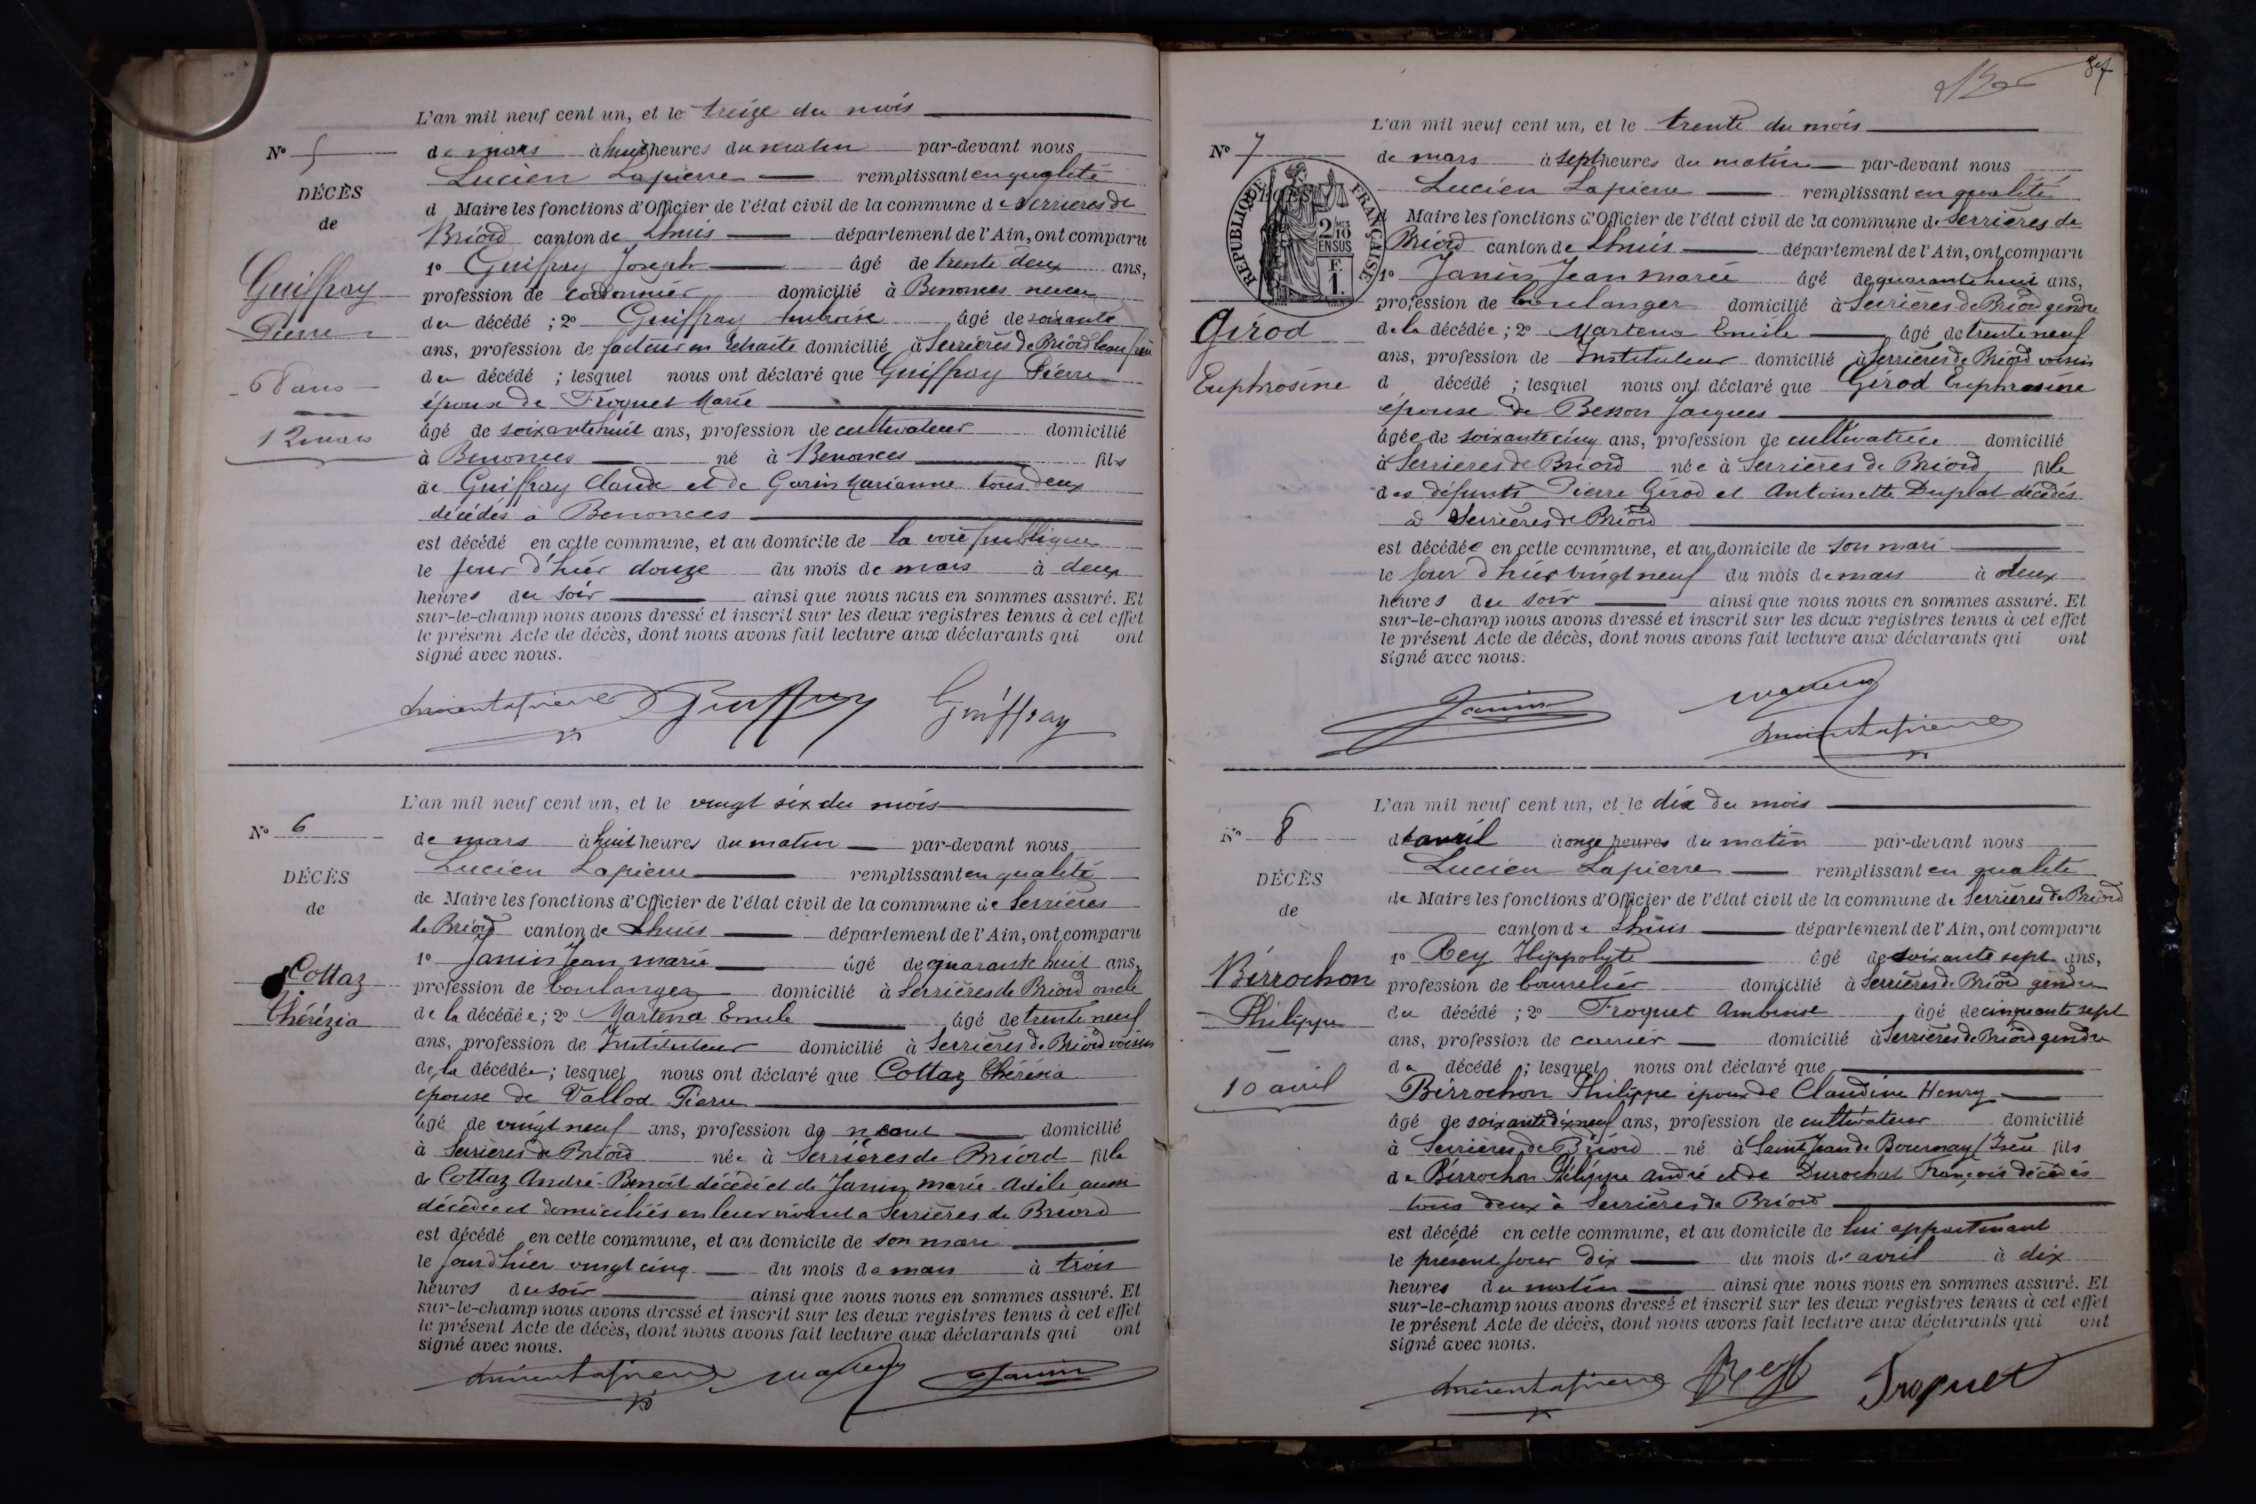 L'an mil neuf cent un, et le treize du mois
N° 5
de mars à huit heures du matin par-devant nous
Lucien Lapierre remplissant en qualité
DÉCÈS
d Maire les fonctions d'Officier de l'état civil de la commune de Serrières de
de
Briord canton de Lhuis département de l'Ain, ont comparu
1° Guiffray Joseph âgé de trente deux ans,
Guiffray
profession de cordonnier domicilié à Benonces neveu
Pierre
du décédé ; 2° Guiffray Ambroise âgé de soixante
ans, profession de facteur en retraite domicilié à Serrières de Briord beau frère
68 ans
du décédé ; lesquel nous ont déclaré que Guiffray Pierre
époux de Troquet Marie
12 mars
âgé de soixante huit ans, profession de cultivateur domicilié
à Benonces né à Benonces fils
de Guiffray Claude et de Garin Marianne tous deux
décédés à Benonces
est décédé en cette commune, et au domicile de la voie publique
le jour d'hier douze du mois de mars à deux
heures du soir ainsi que nous nous en sommes assuré. Et
sur-le-champ nous avons dressé et inscrit sur les deux registres tenus à cet effet
le présent Acte de décès, dont nous avons fait lecture aux déclarants qui ont
signé avec nous.
Lucien Lapierre Guiffray Guiffray
L'an mil neuf cent un, et le vingt six du mois
N° 6
de mars à huit heures du matin par-devant nous
Lucien Lapierre remplissant en qualité
DÉCÈS
de Maire les fonctions d'Officier de l'état civil de la commune de Serrières
de
de Briord canton de Lhuis département de l'Ain, ont comparu
1° Janin Jean marie âgé de quarante huit ans,
Cottaz
profession de boulanger domicilié à Serrières de Briord oncle
Thérézia
de la décédée ; 2° Martena Emile âgé de trente neuf
ans, profession de Instituteur domicilié à Serrières de Briord voisin
de la décédée ; lesquel nous ont déclaré que Cottaz Thérézia
épouse de Vallod Pierre
âgé de vingt neuf ans, profession de néant domicilié
à Serrières de Briord née à Serrières de Briord fille
de Cottaz André-Benoit décédé et de Janin marie-Adèle aussi
décédée et domiciliés en leur vivant à Serrières de Briord
est décédé en cette commune, et au domicile de son mari
le jour d'hier vingt cinq du mois de mars à trois
heures du soir ainsi que nous nous en sommes assuré. Et
sur-le-champ nous avons dressé et inscrit sur les deux registres tenus à cet effet
le présent Acte de décès, dont nous avons fait lecture aux déclarants qui ont
signé avec nous.
Lucien Lapierre Janin
87
L'an mil neuf cent un, et le trente du mois
N° 7
de mars à sept heures du matin par-devant nous
Lucien Lapierre remplissant en qualité
DÉCÈS
RÉPUBLIQUE FRANÇAISE
2 DES 10
EN SUS
F.
1.
d Maire les fonctions d'Officier de l'état civil de la commune de Serrières de
Briord canton de Lhuis département de l'Ain, ont comparu
1° Janin Jean marie âgé de quarante huit ans,
profession de boulanger domicilié à Serrières de Briord gendre
Girod
de la décédée ; 2° Martena Emile âgé de trente neuf
ans, profession de Instituteur domicilié à Serrières de Briord voisin
Euphrosine
d décédé ; lesquel nous ont déclaré que Girod Euphrosine
épouse de Besson Jacques
âgée de soixante cinq ans, profession de cultivatrice domicilié
à Serrières de Briord née à Serrières de Briord fille
des défunts Pierre Girod et Antoinette Duplat décédés
à Serrières de Briord
est décédée en cette commune, et au domicile de son mari
le jour d'hier vingt neuf du mois de mars à deux
heures du soir ainsi que nous nous en sommes assuré. Et
sur-le-champ nous avons dressé et inscrit sur les deux registres tenus à cet effet
le présent Acte de décès, dont nous avons fait lecture aux déclarants qui ont
signé avec nous.
Janin
Lucien Lapierre
L'an mil neuf cent un, et le dix du mois
N° 8
d'avril à onze heures du matin par-devant nous
Lucien Lapierre remplissant en qualité
DÉCÈS
de Maire les fonctions d'Officier de l'état civil de la commune de Serrières de Briord
de
canton de Lhuis département de l'Ain, ont comparu
1° Rey Hippolyte âgé de soixante sept ans,
Birrochon
profession de bourrelier domicilié à Serrières de Briord gendre
Philippe
du décédé ; 2° Troquet Ambroise âgé de cinquante sept
ans, profession de carrier domicilié à Serrières de Briord gendre
du décédé ; lesquel nous ont déclaré que
10 avril
Birrochon Philippe époux de Claudine Henry
âgé de soixante dix neuf ans, profession de cultivateur domicilié
à Serrières de Briord né à Saint Jean de Bournay (Isère fils
de Birrochon Philippe André et de Durochat François décédés
tous deux à Serrières de Briord
est décédé en cette commune, et au domicile de lui appartenant
le présent jour dix du mois de avril à dix
heures du matin ainsi que nous nous en sommes assuré. Et
sur-le-champ nous avons dressé et inscrit sur les deux registres tenus à cet effet
le présent Acte de décès, dont nous avons fait lecture aux déclarants qui ont
signé avec nous.
Lucien Lapierre Rey Troquet